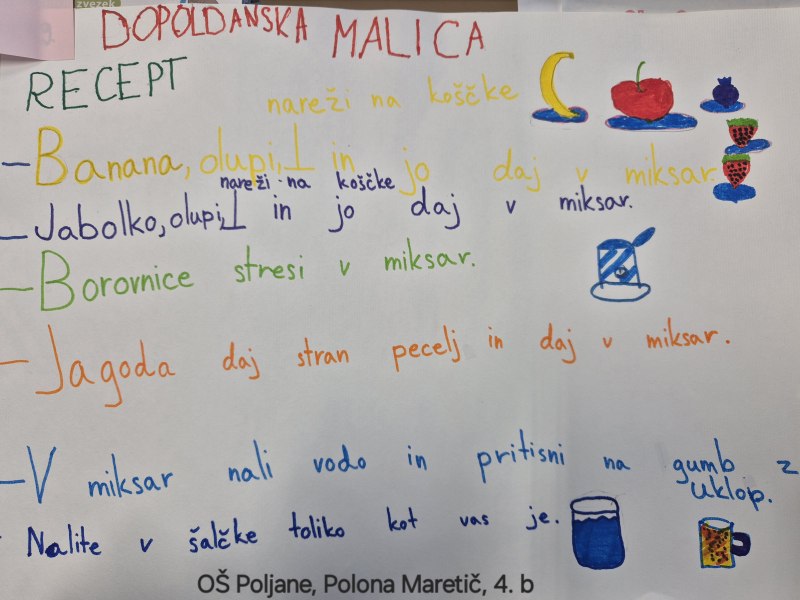 zvezek
DOPOLDANSKA MALICA
RECEPT
nareži na koščke
- Banana, olupi,⊥ in jo daj v miksar.
nareži na koščke
- Jabolko, olupi,⊥ in jo daj v miksar.
- Borovnice stresi v miksar.
- Jagoda daj stran pecelj in daj v miksar.
- V miksar nali vodo in pritisni na gumb z
uklop.
Nalite v šalčke toliko kot vas je.
OŠ Poljane, Polona Maretič, 4. b